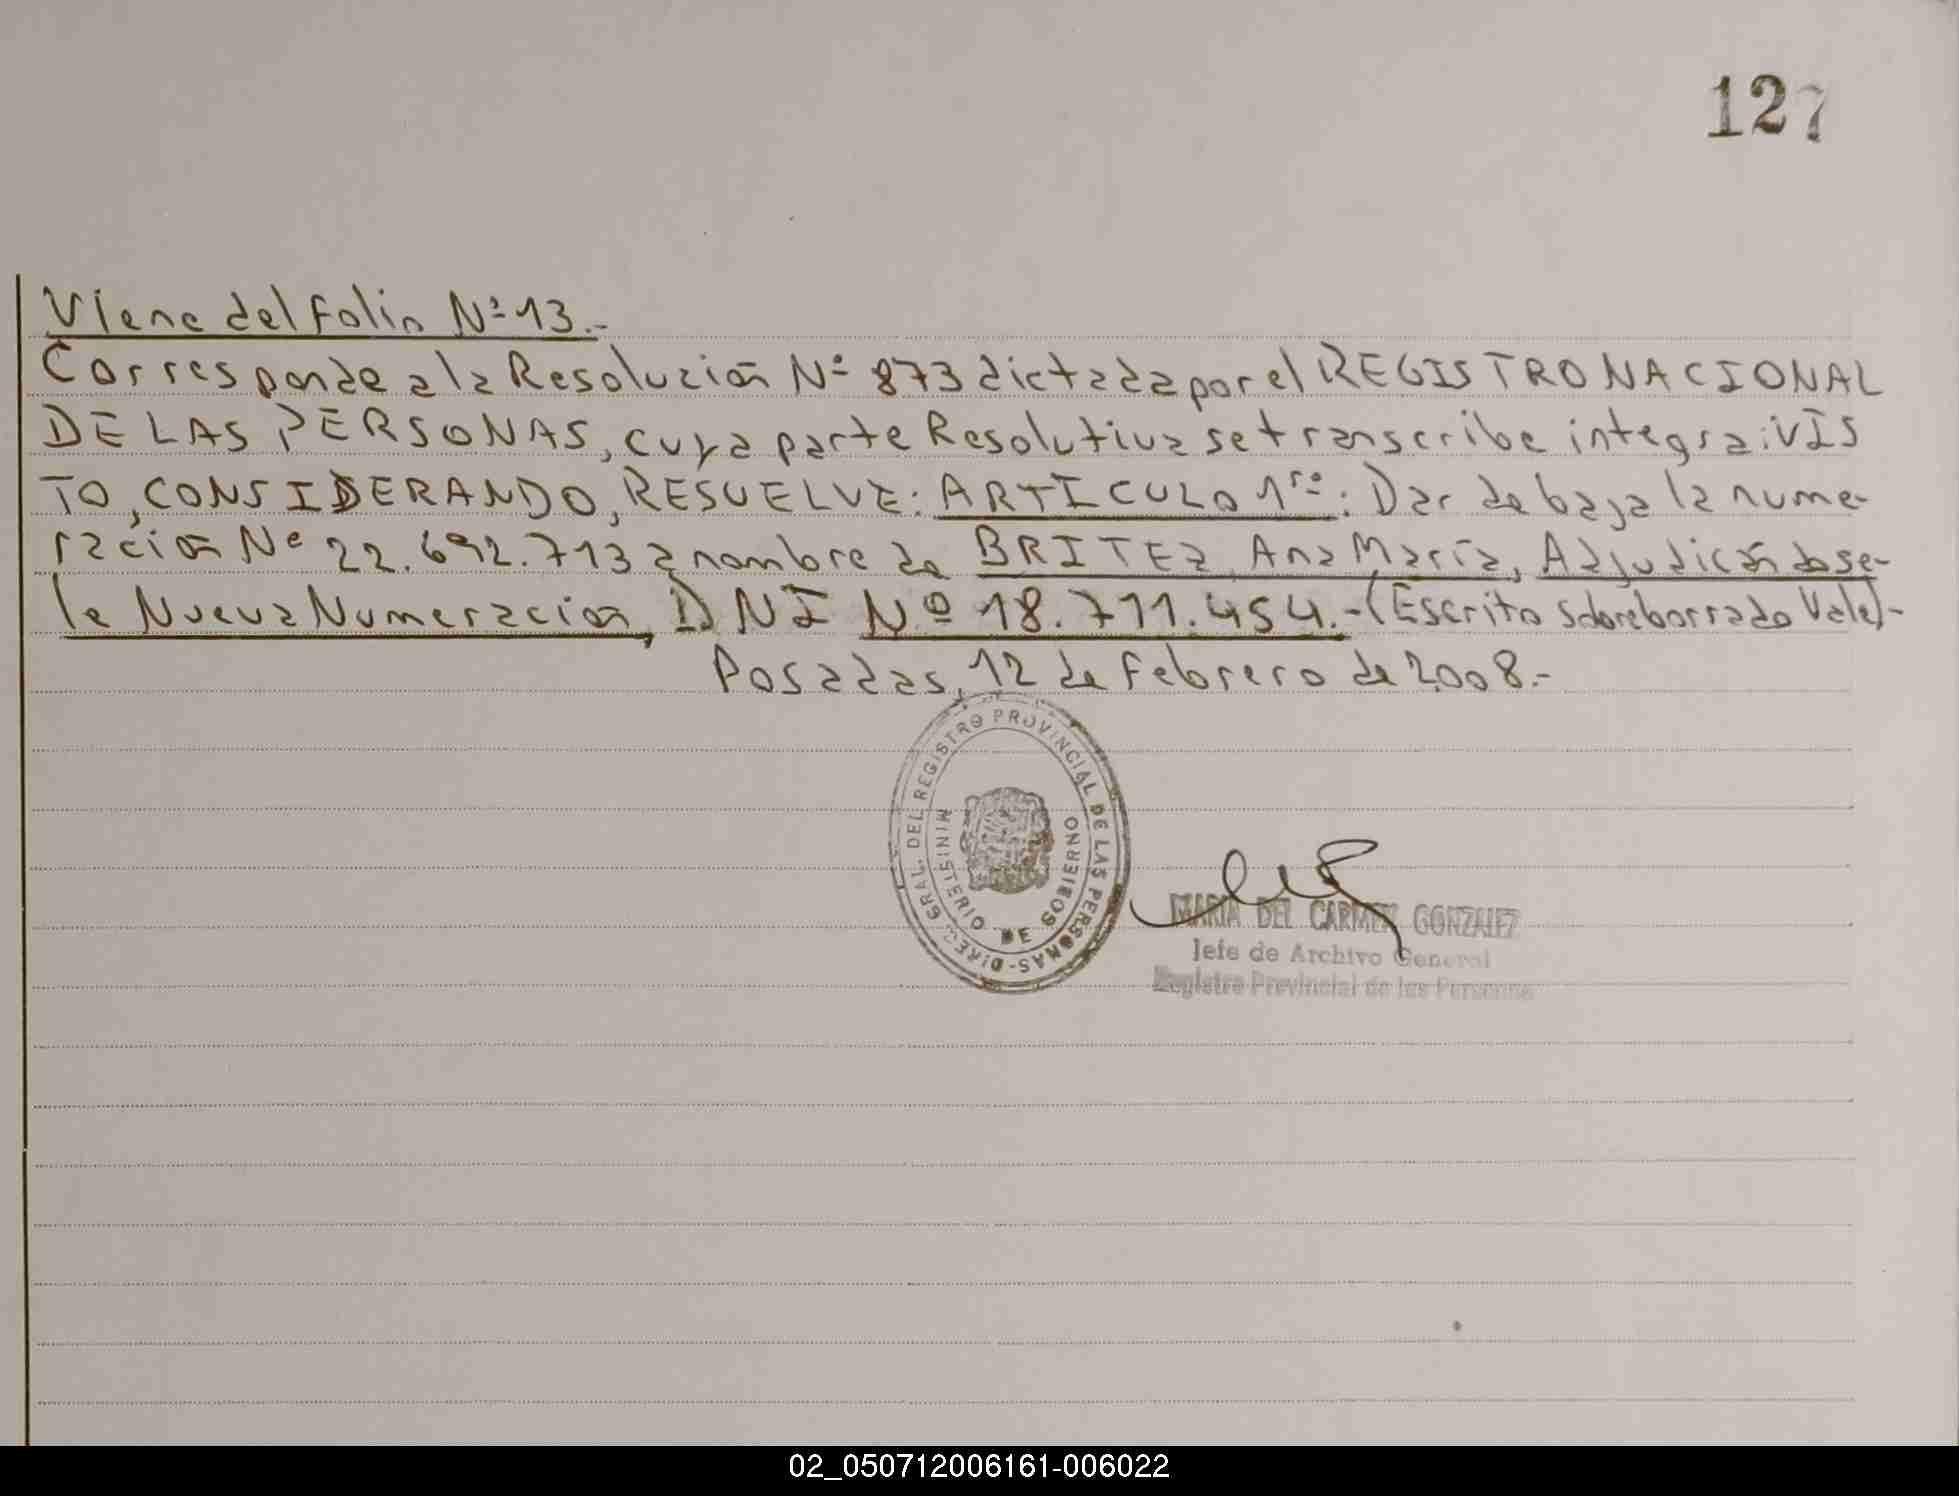 127
Viene del folio Nº 13.-
Corresponde a la Resolución Nº 873 dictada por el REGISTRO NACIONAL
DE LAS PERSONAS, cuya parte Resolutiva se transcribe integra: VIS
TO, CONSIDERANDO, RESUELVE: ARTICULO 1ro: Dar de baja la nume-
ración Nº 22.692.713 a nombre de BRITEZ, Ana María, Adjudicándose-
le Nueva Numeración, DNI Nº 18.711.454.-(Escrito sobreborrado Vale)-
Posadas, 12 de Febrero de 2.008.-
GRAL. DEL REGISTRO PROVINCIAL DE LAS PERSONAS-DIREC
MINISTERIO DE GOBIERNO
MARIA DEL CARMEN GONZALEZ
Jefe de Archivo General
Registro Provincial de las Personas
02_050712006161-006022